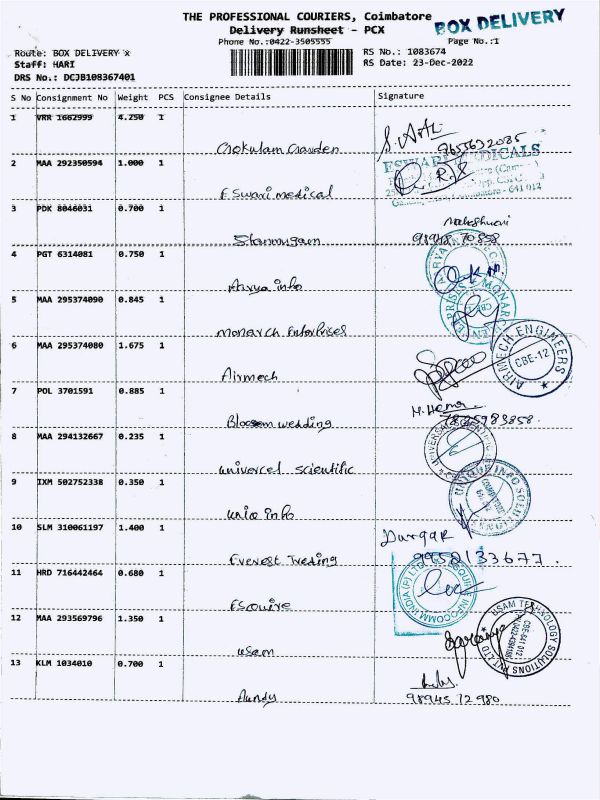 THE PROFESSIONAL COURIERS, Coimbatore
BOX DELIVERY
Delivery Runsheet - PCX
Phone No.:0422-3505555
Page No.:1
Route: BOX DELIVERY x
RS No.: 1083674
Staff: HARI
RS Date: 23-Dec-2022
DRS No.: DCJB108367401
S No Consignment No Weight PCS Consignee Details Signature
1 VRR 1662999 4.250 1
Gokulam Garden
2 MAA 292350594 1.000 1
ESWARI MEDICALS
Eswari medical
3 PDK 8046031 0.700 1
Shanmugam
4 PGT 6314081 0.750 1
Arya info
5 MAA 295374090 0.845 1
monarch Enterprises
6 MAA 295374080 1.675 1
AIRMECH ENGINEERS
CBE-12
Airmech
7 POL 3701591 0.885 1
Blossom wedding
8 MAA 294132667 0.235 1
univercel scientific
9 IXM 502752338 0.350 1
uniq info
10 SLM 310061197 1.400 1
Everest Treding
9958133677.
11 HRD 716442464 0.680 1
Esquire
12 MAA 293569796 1.350 1
USAM TECHNOLOGY SOLUTIONS PVT LTD
usam
13 KLM 1034010 0.700 1
98945 72980